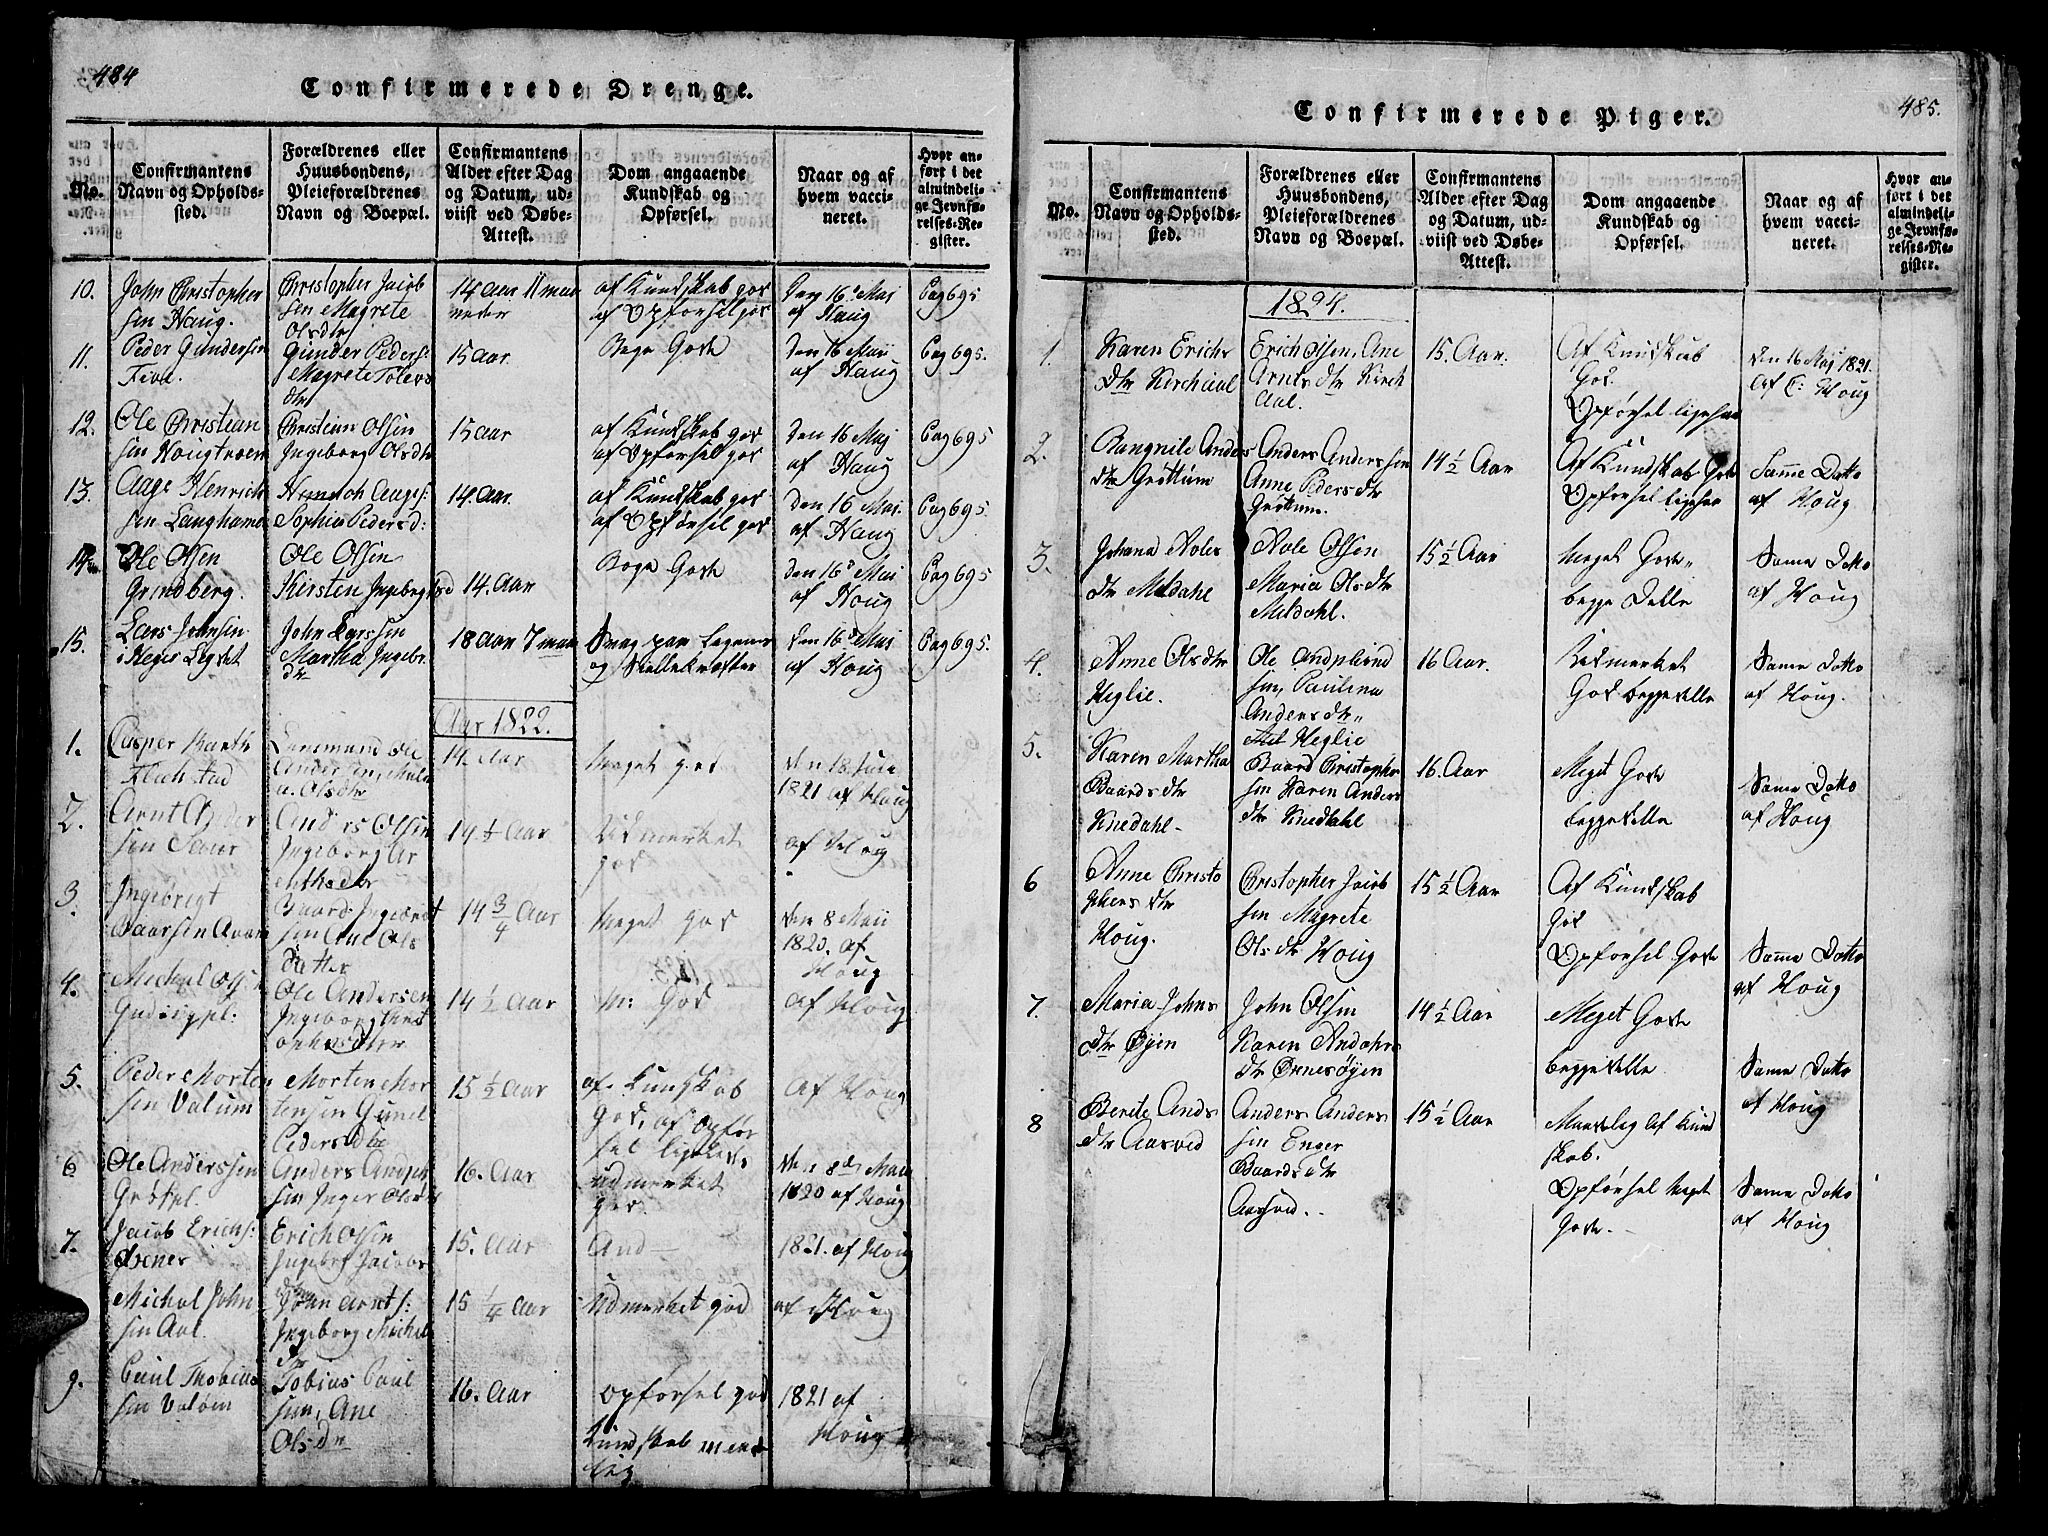 484
Confirmerede Drenge.
No.
Confirmantens Navn og Opholds-sted.
Forældrenes eller Huusbondens, Pleieforældrenes Navn og Boepæl.
Confirmantens Alder efter Dag og Datum, ud-viist ved Døbe-Attest.
Dom angaaende Kundskab og Opførsel.
Naar og af hvem vacci-neret.
Hvor an-ført i det almindeli-ge Jevnfø-relses-Re-gister.
10.
John Christopher
sen Haug.
Christopher Jacob
sen Magrete
Olsdtr
14 Aar 11 maa
neder
af Kundskab god
af Opførsel god
Den 16d Maj
af Haug
Pag 695
11.
Peder Gundersen
Gunder Peders:
Magrete Tolevs
dtr
15 Aar.
Bege Gode
den 16 Maii
af Haug
Pag 695.
12.
Ole Christian
sen Hougtroen
Christian Olsen
Ingeborg Olsdtr
15 Aar
af Kundskab god
af Opførsel god
den 16 Maj
af Haug
Pag 695
13.
Aage Henrich
sen Langhamer
Henrich Aages:
Sophia Pedersd:
14. Aar.
af Kundskab god
af Opførsel god
den 16 Maj.
af Haug
Pag 695.
14.
Ole Olsen
Grindberg.
Ole Olsen
Kirsten
14. Aar
Bege Gode
den 16d Maj
af Houg
Pag 695
15.
Lars Johnsen
John Larssen
Martha Ingebr.
dtr
18 Aar 7 maa
og
den 16d Maj
af Houg
Pag 695.
Aar 1822.
1.
Casper
Flakstad
14. Aar
Meget god
den 18
1821 af Houg
2.
Arnt Ander
sen
Anders Olsen
Ingeborg Ar
14 ½ Aar
Udmerket
god
af Houg
3.
Ingebrigt
Baarsen
Baard Ingebrigt
sen Ane Ols
datter
14 3/4 Aar
Meget god
den 8 Maii
1820. af
Houg
4.
Michel Olsen
Ole Andersen
Ingeborg Christ
ophersdtter
14 ½ Aar
M: God
af Houg
5.
Peder Morten
sen Valum
Morten Mor
tensen Gunel
Pedersdtr
15 ½ Aar
af Kunskab
God, af Opfør
sel
Af Houg
6
Ole Anderssen
Anders
sen Inger Olsdtr
16. Aar
udmerket
god.
den 8de Maii
1820 af Houg
7.
Jacob Erichs:
Erich Olsen
Ingebor Jacobs
dtr
15. Aar
1821. af Houg
Michel John
sen Aal.
John Arnts:
Ingeborg Michel
dtr
15 1/4 Aar
Udmerket god
af Houg
9.
Paul Thobias
sen Valum
Tobias Paul
sen, Ane
Olsdtr
16. Aar
Opførsel god
Kundskab
1821 af
Houg
485.
Confirmerede Piger.
No.
Confirmantens Navn og Opholds-sted.
Forældrenes eller Huusbondens, Pleieforældrenes Navn og Boepæl.
Confirmantens Alder efter Dag og Datum, ud-viist ved Døbe-Attest.
Dom angaaende Kundskab og Opførsel.
Naar og af hvem vacci-neret.
Hvor an-ført i det almindeli-ge Jevnfø-relses-Re-gister.
1824.
1.
Karen Erichs
dtr Kirchaal
Erich Olsen, Ane
Arntsdtr Kirch
Aal.
15. Aar.
Af Kundskab
God.
Opførsel
den 16 Maj 1821.
af C: Houg
2.
Rangnile Anders
dtr Grøttum
Anders Anderssen
Anne Pedersdtr
Grøttum.
14 ½ Aar
Af Kundskab God
Opførsel
Samme Datto
af Houg
3.
Johana Aoles
dtr Meldahl
Aole Olsen
Maria Olsdtr
Meldahl.
15 ½ Aar
Meget Gode
begge Delle
Same Datto
af Houg
4.
Anne Olsdtr
Heglie.
Ole
sen, Paulina
Andersdtr
Heglie
16 Aar.
Udmerket
God begge delle
Same Datto
af Houg.
5.
Karen Martha
Baards dtr
Knedahl.
Baard Christopher
sen Karen Anders
dtr Knedahl
16. Aar
Meget Gode
begge delle
Same Datto
af Houg
6
Anne Christo
phers dtr
Houg.
Christopher Jacob
sen Magrete
Olsdtr Houg
15 ½ Aar
Af Kundskab
God
Opførsel Gode
Samme Datto
af Houg
7.
Maria Johns
dtr Øyen
John Olsen
Karen
dtr Ørnesøyen
14 ½ Aar
Meget Gode
begge delle
Same Datto
af Houg
8
Berite Ands
dtr Aasved
Anders Anders
sen Enger
Baardsdtr
Aasved.
15 ½ Aar
Maadelig Af Kund
skab.
Opførsel Meget
Gode.
Same Datto
af Houg